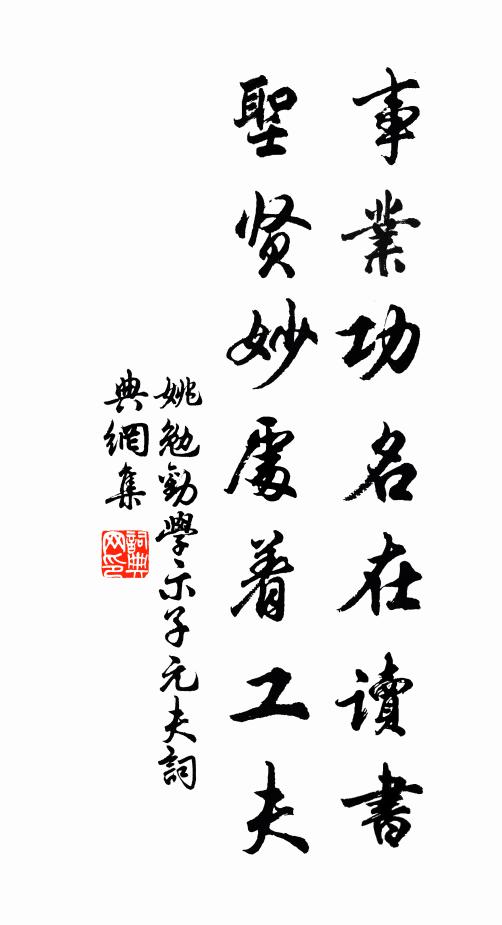 事業功名在讀書
聖贤妙處着工夫
姚勉勸學示子元夫詞
典網集
詞典网印